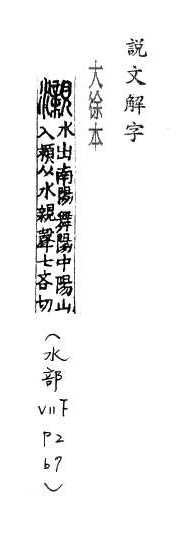 説文解字
大徐本
瀙水出南陽舞陽中陽山
入潁从水親聲七吝切
（水部VII下P2b7）